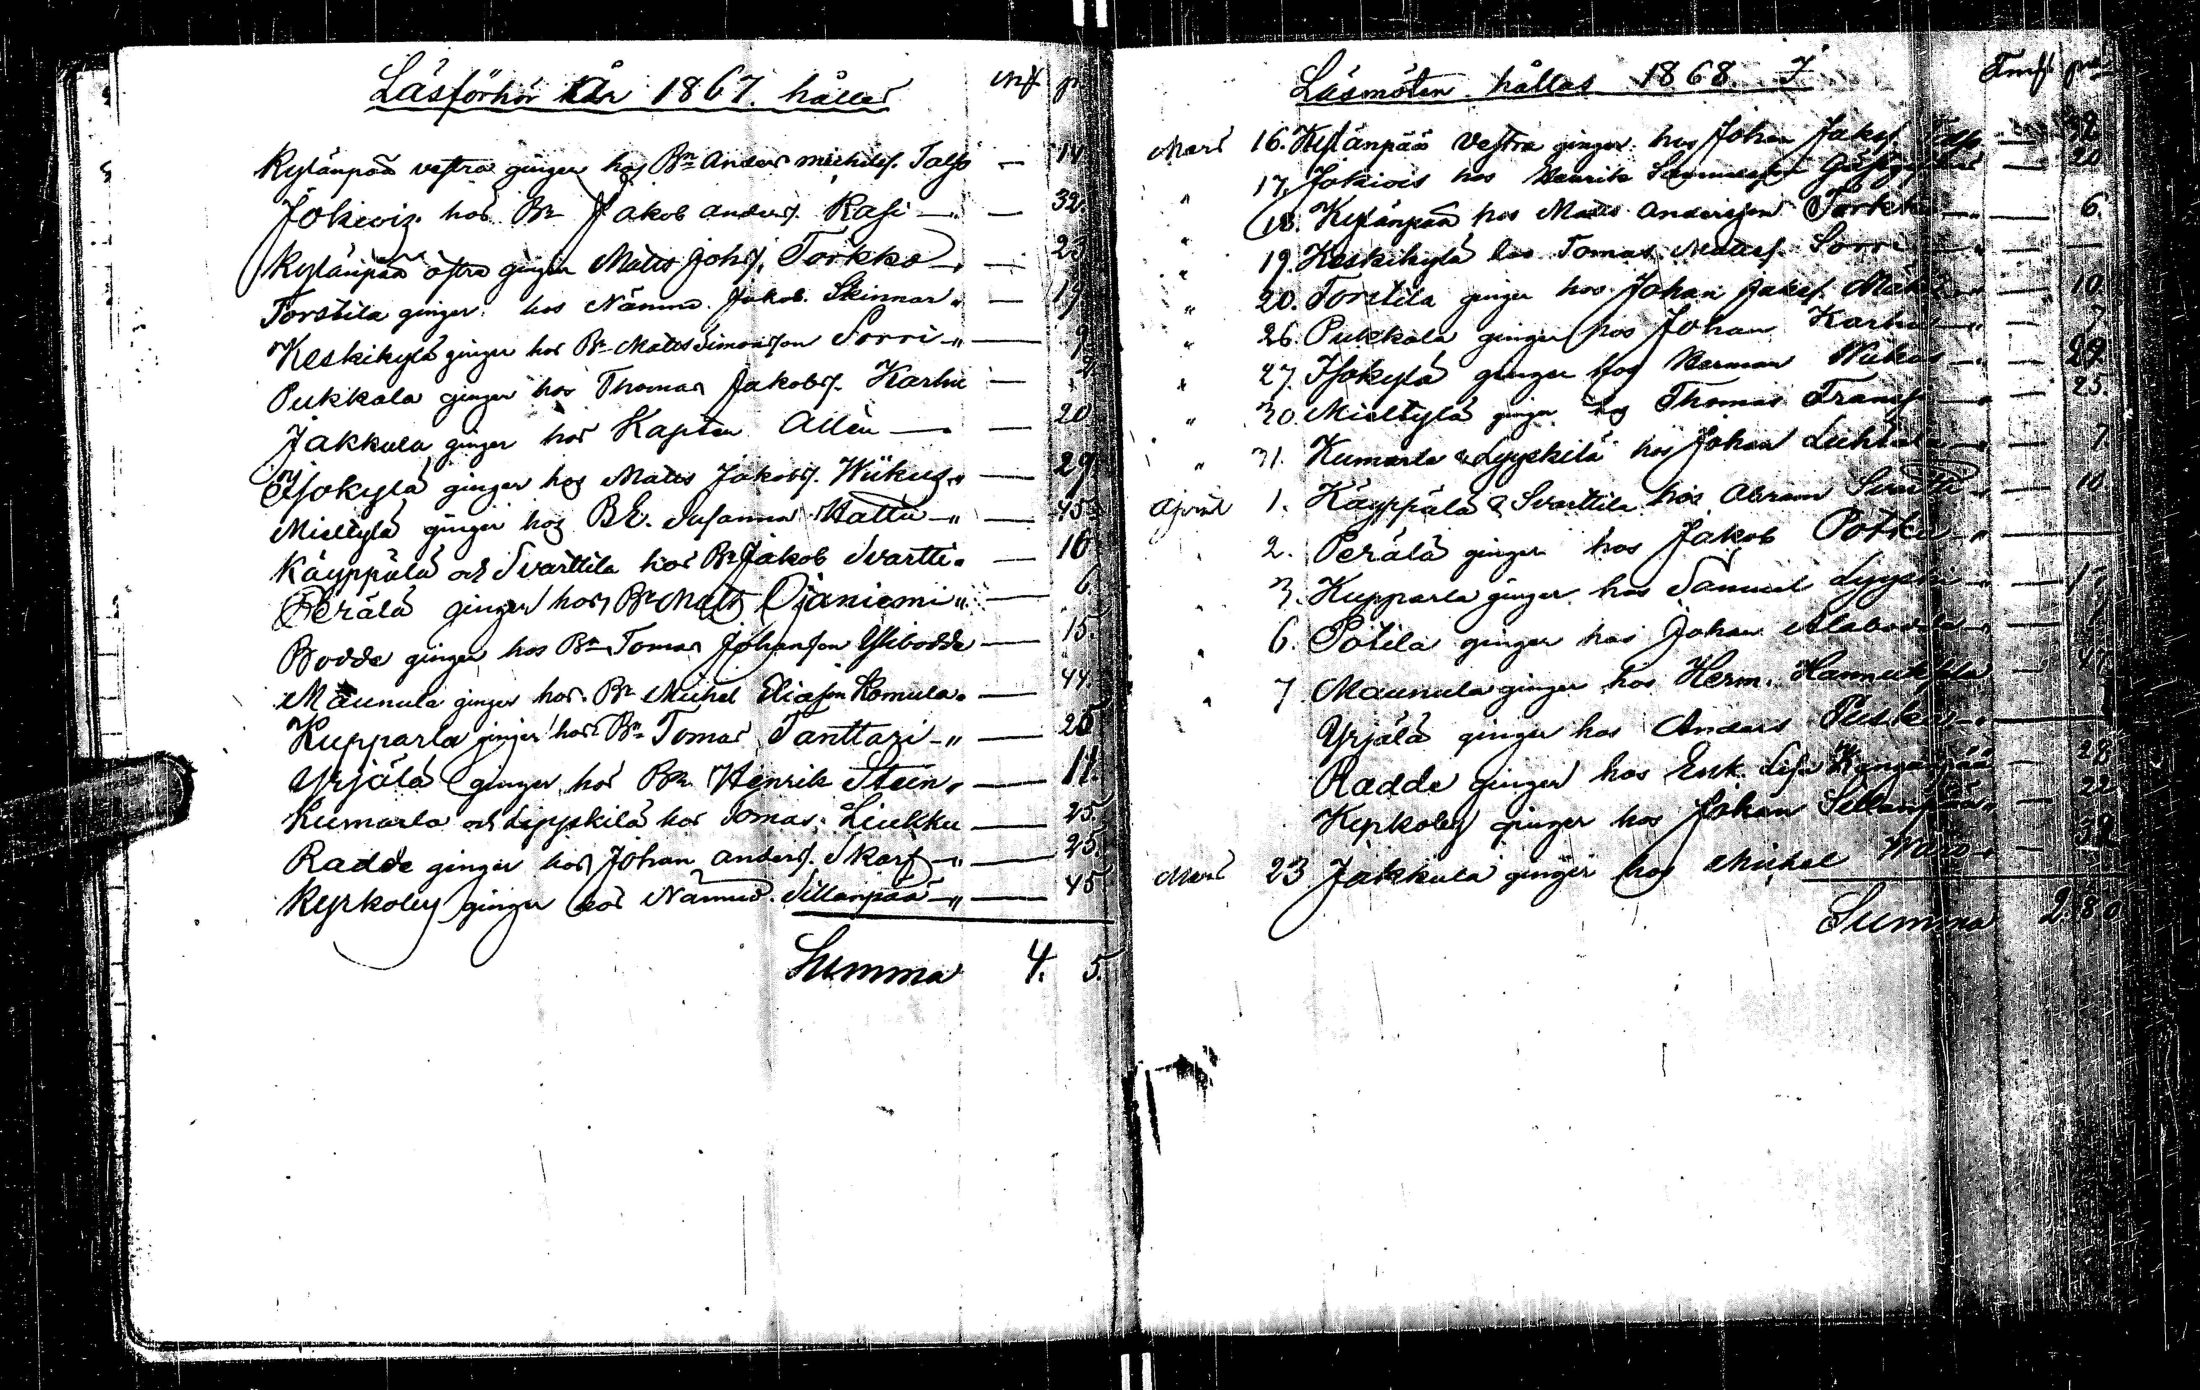 Läsförhör År 1867. hålles mk p.
Kylänpää vestra ginger hos Bn Anders Michelss. Talso — 14
Jokiviz. hos Bn Jakob Anderss. Kasi — 32.
Kylänpää östra ginger Matts Johss. Torkko — 23
Torstila ginger. hos Nämnd. Jakob. Skinnar " — 19
Keskikylä ginger hos Bn Matts Simonsson Sorri " — 9.
Pukkala ginger hos Thomas Jakobss. Karhu — 2.
Jakkula ginger hos Kapten Allén — 20
Isokylä ginger hos Matts Jakobss. Wiikus " — 29.
Mieltylä ginger hos BE. Susanna Hattu " — 45
Käyppälä och Svarttila hos Bn Jakob Svartti " — 10
Perälä ginger hos Bn Matts Ojaniemi " — 6
Bodde ginger hos Bn Tomas Johansson Ylibodde — 15.
Maunula ginger hos Bn Michel Eliasson Komula " — 44.
Kupparla ginger hos Bn Tomas Tanttari " — 25
Yrjälä ginger hos Bn Henrik Stein " — 11.
Kumarla och Lyyskilä hos Tomas. Liukku — 25.
Radde ginger hos Johan Anderss. Skarf " — 25.
Kyrkoby ginger hos Nämnd. Sillanpää " — 45
Summa 4. 5.
Läsmöten hållas 1868. I
Mars 16. Kylänpää Vestra ginger hos Johan Jakss. — 32
" 17. Jokivis hos Henrik — 20
" 18. Kylänpää hos Matts Andersson Torkko " — 6.
" 19. Keskikylä hos Tomas Mattss. Sorri —
" 20. Torstila ginger hos Johan Jakss. — 10
" 26. Pukkala ginger hos Johan Karhu " — 7
" 27. Isokylä ginger hos Herman Wiikus — 29.
" 30. Mieltylä ginger hos Thomas — 25.
" 31. Kumarla & Lyyskilä hos Johan — 7
April 1. Käyppälä & Svarttila hos Abram Svartti " — 10
2. Perälä ginger hos Jakob Potka " —
3. Kupparla ginger hos Samuel Lyyski — 17
6. Potila ginger hos Johan Alabodda "
7 Maunula ginger hos Herm. Hannuksela
Yrjälä ginger hos Anders —
Radde ginger hos Enk. Lisa Kanganpää — 28
Kyrkoby ginger hos Johan Sillanpää " — 22
Mars 23 Jakkula ginger hos Michel — 32
Summa 2.80